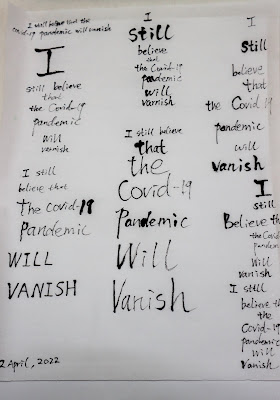 I will believe that the
covid-19 pandemic will vanish
I
still believe
that
the Covid-19
pandemic
will
vanish
I still
believe that
the Covid-19
Pandemic
WILL
VANISH
2 April, 2022
I
still
believe
that
the Covid-19
pandemic
will
varnish
I still believe
that
the
Covid-19
Pandemic
Will
Vanish
I
still
believe
that
the Covid 19
pandemic
will
vanish
I
still
Believe that
the Covid
pandem
will
vanish
I still
believe that
the
Covid-19
pandemic
Will
Vanish